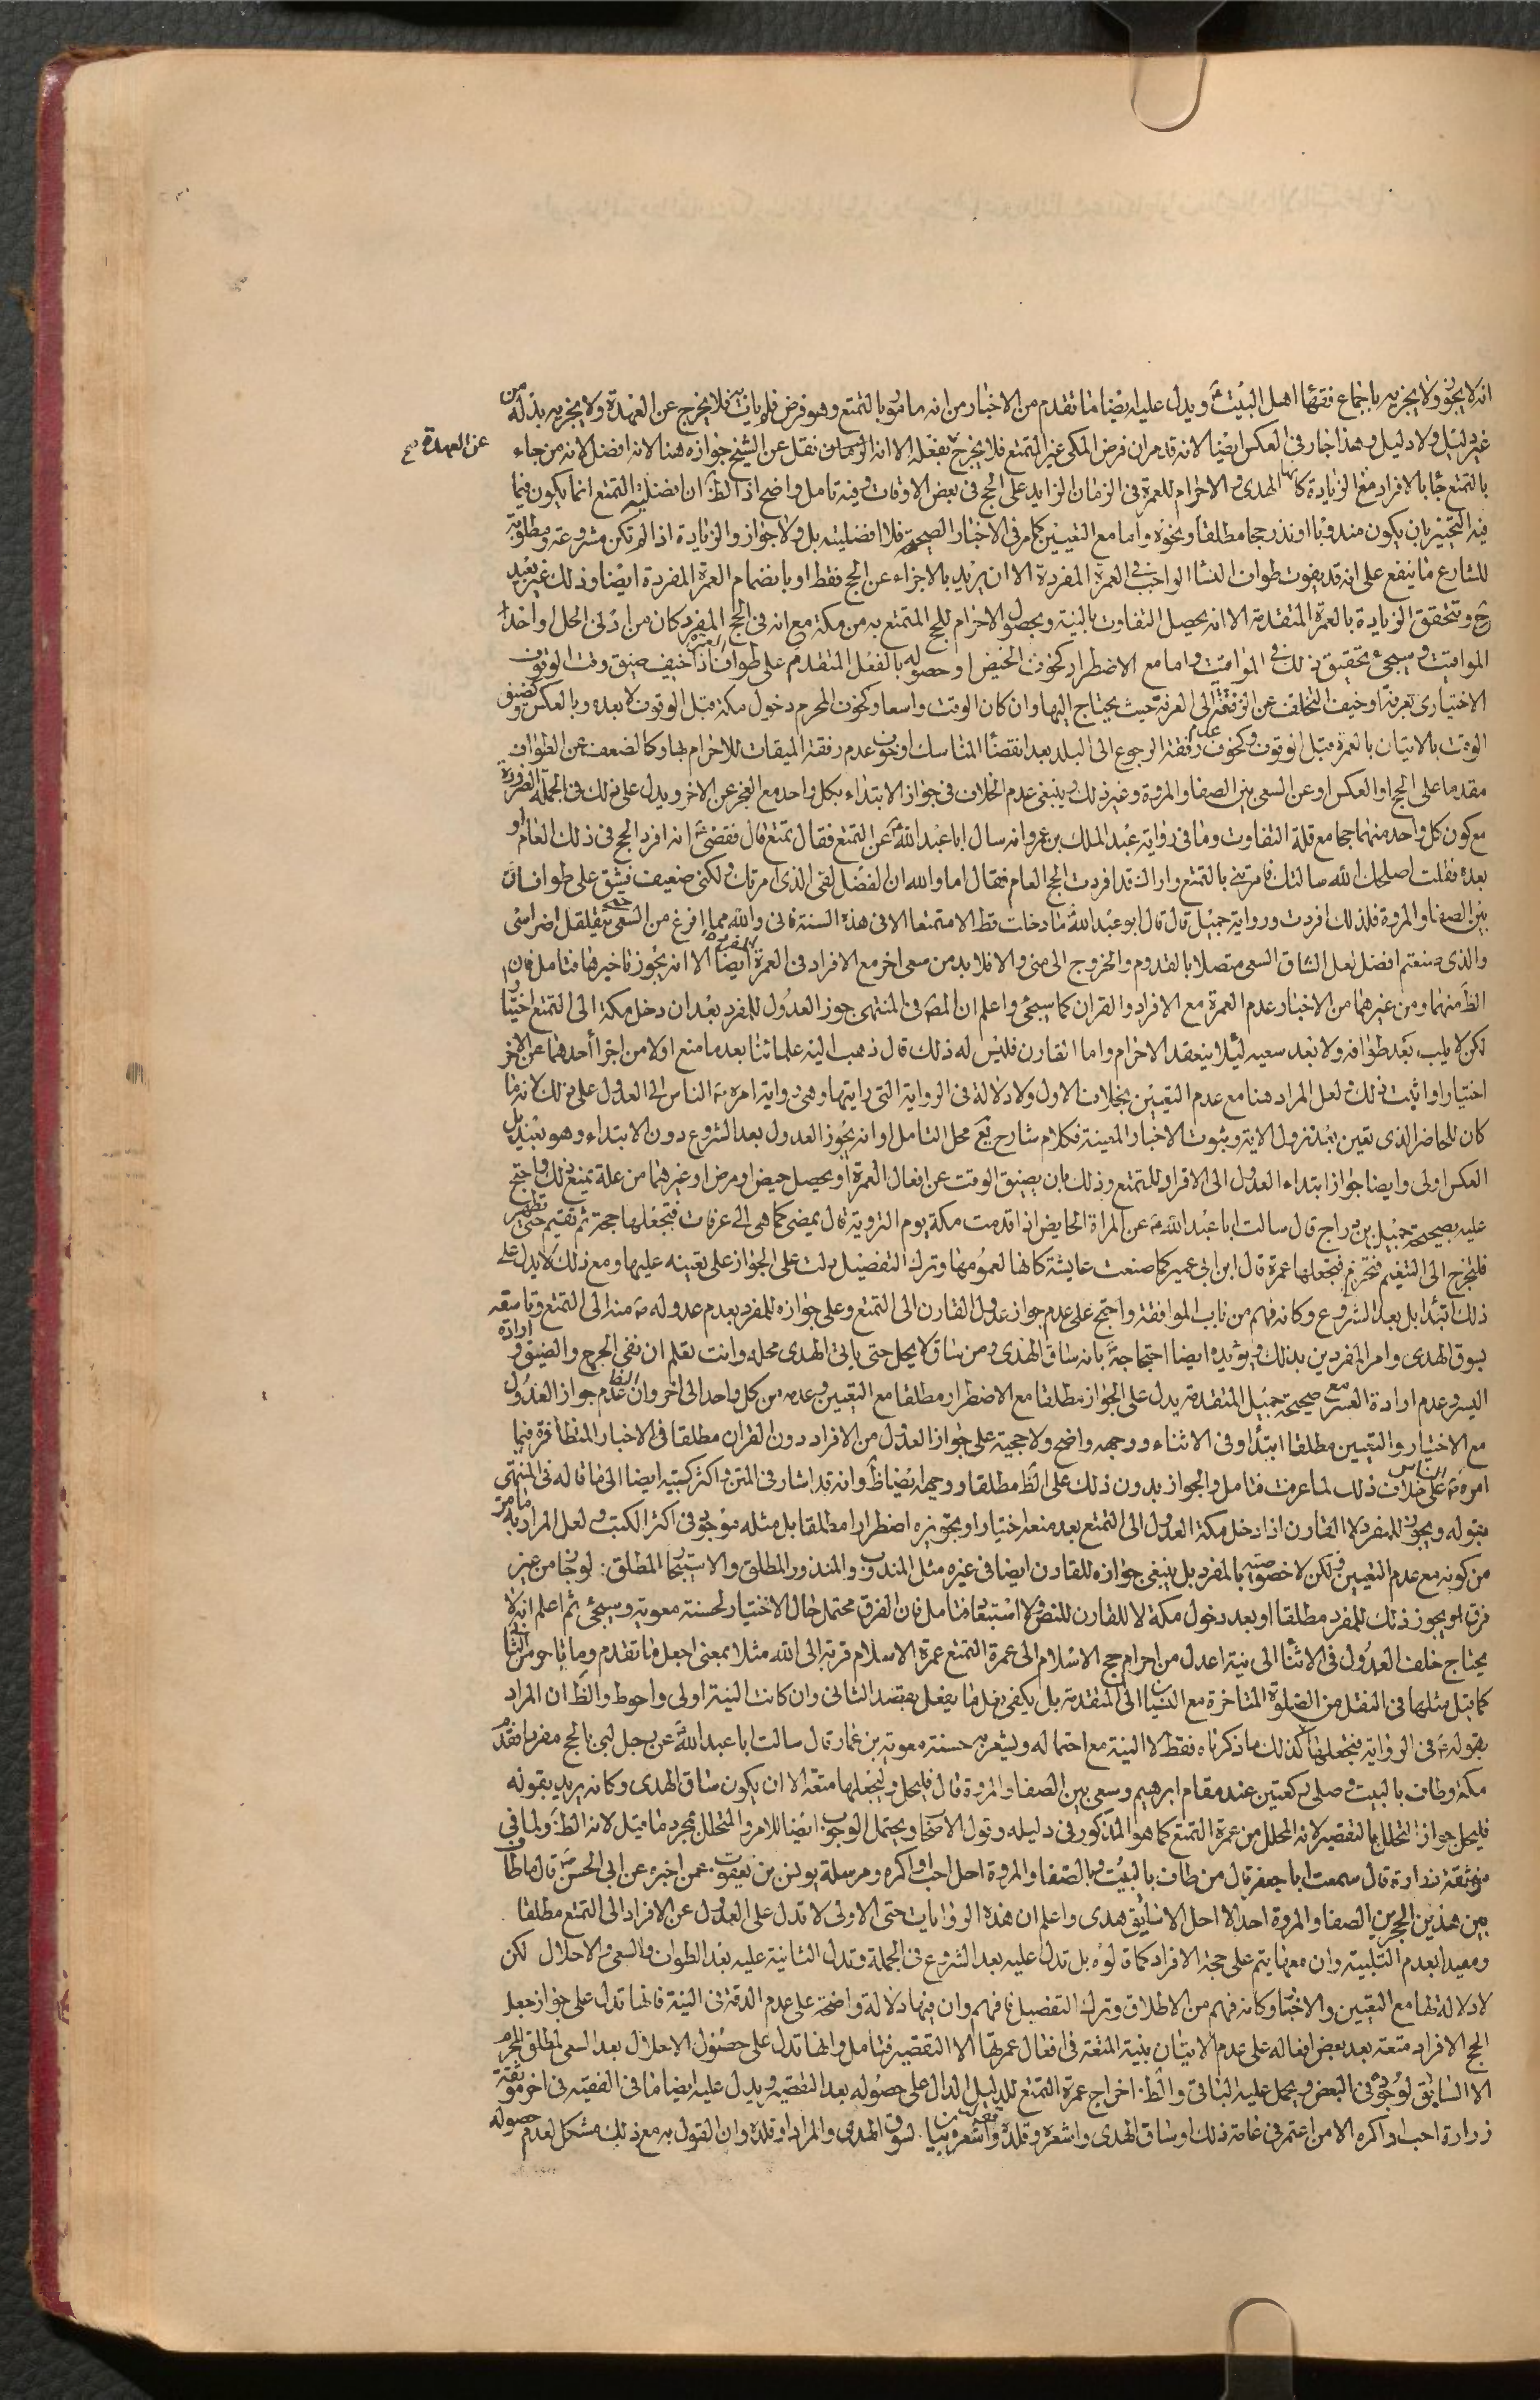 انه لا يجوز ولا يجزيه باجماع فقهاء اهل البيت ع ويدل عليه ايضا ما تقدم من الاخبار من انه مامور بالتمتع وهو فرض فلم يات به فلا يخرج عن العهدة ولا يجزيه بذله من
عن العهدة صح
غير دليل ولا دليل وهذا جار فى العكس ايضا لانه قد مر ان فرض المكى غير التمتع فلا يخرج بفعله الا انه نقل عن الشيخ جوازه هنا لانه افضل لانه من جاء
بالتمتع جاء بالافراد مع الزيادة كانها الهدى والاحرام للعمرة فى الزمان الزايد على الحج فى بعض الاوقات وفيه تامل واضح اذ الظ ان افضلية التمتع انما يكون فيما
فيه التخيير بان يكون مندوبا او نذر حجا مطلقا ونحوه واما مع التعيين كما مر فى الاخبار الصحيحة فلا افضلية بل ولا جواز والزيادة اذا لم تكن مشروعة ومطلوبة
للشارع ما ينفع على انه قد يفوت طواف النساء الواجب فى العمرة المفردة الا ان يريد بالاجزاء عن الحج فقط او بانضمام العمرة المفردة ايضا وذلك غير بعيد
ح وتتحقق الزيادة بالعمرة المتقدمة الا انه يحصل التفاوت بالنية وبحصول الاحرام للحج المتمتع به من مكة مع انه فى الحج المفرد كان من ادنى الحل او احد
المواقيت وسيجئ تحقيق ذلك فى المواقيت واما مع الاضطرار كخوف الحيض او حصوله بالفعل المتقدم على طواف العمرة اذا خيف ضيق وقت الوقوف
الاختيارى بعرفة او خيف التخلف عن الرفقة الى العرفة حيث يحتاج اليها وان كان الوقت واسعا وكخوف المحرم دخول مكة قبل الوقوف لا بعده وبالعكس وضيق
الوقت بالاتيان بالعمرة قبل الوقوف وكخوف عدم رفقة الرجوع الى البلد بعد انقضاء المناسك او خوف عدم رفقة الميقات للاحرام بها وكالضعف عن الطواف
مقدما على الحج او العكس او عن السعى بين الصفا والمروة وغير ذلك وينبغى عدم الخلاف فى جواز الابتداء بكل واحد مع العجز عن الاخر ويدل على ذلك فى الجملة الضرورة
مع كون كل واحد منهما حجا مع قلة التفاوت وما فى رواية عبد الملك بن عمرو انه سال ابا عبد الله ع عن التمتع فقال تمتع قال فقضى انه افرد الحج فى ذلك العام او
بعده فقلت اصلحك الله سالتك فامرتنى بالتمتع واراك قد افردت الحج العام فقال اما والله ان الفضل لفى الذى امرتك ولكنى ضعيف فشق على طوافان
بين الصفا والمروة فلذلك افردت ورواية جميل قال قال ابو عبد الله ع ما دخلت قط الا متمتعا الا فى هذه السنة فانى والله مما افرغ من السعى حتى يتقلقل اضراسى
والذى صنعتم افضل لعل الشاق السعى متصلا بالقدوم والخروج الى منى والا فلا بد من سعى اخر مع الافراد فى العمرة المفردة ايضا الا انه يجوز تاخيرها فتامل فان
الظ منهما ومن غيرهما من الاخبار عدم العمرة مع الافراد والقران كما سيجئ واعلم ان المص فى المنتهى جوز العدول للمفرد بعد ان دخل مكة الى التمتع اختيارا
لكن لا يلب بعد طوافه ولا بعد سعيه لئلا ينعقد الاحرام واما القارن فليس له ذلك قال ذهب اليه علمائنا بعد ما منع اولا من اجزاء احدهما عن الاخر
اختيارا واثبت ذلك ولعل المراد هنا مع عدم التعيين بخلاف الاول ولا دلالة فى الرواية التى رايتها وهى رواية امره ص الناس الى العدول على ذلك لانه ما
كان للحاضر الذى تعين بعد نزول الاية وثبوت الاخبار المعينة فكلام شارح يع محل التامل او انه يجوز العدول بعد الشروع دون الابتداء وهو بعيد بل
العكس اولى وايضا جواز ابتداء العدول الى الافراد للمتمتع وذلك بان يضيق الوقت عن افعال العمرة او يحصل حيض او مرض او غيرهما من علة تمنع ذلك واحتج
عليه بصحيحة جميل بن دراج قال سالت ابا عبد الله ع عن المراة الحايض اذا قدمت مكة يوم التروية قال يمضى كما هى الى عرفات فتجعلها حجة ثم تقيم حتى تطهر
فتخرج الى التنعيم فتحرم فتجعلها عمرة قال ابن ابى عمير كما صنعت عايشة كانها لعمومها وترك التفصيل دلت على الجواز على تعينه عليها ومع ذلك لا يدل على
ذلك ابتداء بل بعد الشروع وكانه فهم من باب الموافقة واحتج على عدم جواز عدول القارن الى التمتع وعلى جوازه للمفرد بعدم عدوله ص منه الى التمتع وتاسفه
بسوق الهدى وامر المفردين بذلك ويؤيده ايضا احتجاجه بانه ساق الهدى ومن ساق لا يحل حتى ياتى الهدى محله وانت تعلم ان نفى الحرج والضيق وارادة
اليسر وعدم ارادة العسر مع صحيحة جميل المتقدمة يدل على الجواز مطلقا مع الاضطرار مطلقا مع التعيين وعدمه من كل واحد الى اخر وان الظ عدم جواز العدول
مع الاختيار والتعيين مطلقا ابتداء وفى الاثناء ووجهه واضح ولا حجية على جواز العدول من الافراد دون القران مطلقا فى الاخبار المتظافرة فيما
امره ص الناس على خلاف ذلك لما عرفت فتامل والجواز بدون ذلك على الظ مطلقا ووجهه ايضا ظ وانه قد اشار فى المتن واكثر كتبه ايضا الى ما قاله فى المنتهى
بقوله ويجوز للمفرد لا القارن اذا دخل مكة العدول الى التمتع بعد منعه اختيارا وتجويزه اضطرارا مطلقا بل مثله موجود فى اكثر الكتب ولعل المراد به ما مر
من كونه مع عدم التعيين ولكن لا خصوصية بالمفرد بل ينبغى جوازه للقارن ايضا فى غيره مثل المندوب والمنذور المطلق والاستيجار المطلق لوجودها من غير
فرق او يجوز ذلك للمفرد مطلقا او بعد دخول مكة لا للقارن للنص ولا استبعاد فتامل فان الفرق محتمل حال الاختيار لحسنة معوية وسيجئ ثم اعلم انه لا
يحتاج خلف العدول فى الاثناء الى نية اعدل من احرام حج الاسلام الى عمرة التمتع عمرة الاسلام قربة الى الله مثلا بمعنى اجعل ما تقدم وما
كما قيل مثلها فى النقل من الصلوة المتاخرة مع النسيان الى المتقدمة بل يكفى فعل ما يفعل بقصد الثانى وان كانت النية اولى واحوط والظ ان المراد
بقوله ع فى الرواية فتجعلها كذلك ما ذكرناه فقط لا النية مع احتماله ويشعر به حسنة معوية بن عمار قال سالت ابا عبد الله ع عن رجل لبى بالحج مفردا فقدم
مكة وطاف بالبيت وصلى ركعتين عند مقام ابرهيم وسعى بين الصفا والمروة قال فليحل وليجعلها متعة الا ان يكون ساق الهدى وكانه يريد بقوله
فليحل جواز التحلل بالتقصير لانه المحلل من عمرة التمتع كما هو المذكور فى دليله وقول الاصحاب ويحتمل الوجوب ايضا للامر والتحلل بمجرد ما قيل لانه الظ ولما فى
موثقة زرارة قال سمعت ابا جعفر قال من طاف بالبيت وبالصفا والمروة احل احب او اكره ومرسلة يونس بن يعقوب عمن اخبره عن ابى الحسن ع قال ما طاف
بين هذين الحجرين الصفا والمروة احد الا احل الا سايق هدى واعلم ان هذه الروايات حتى الاولى لا تدل على العدول عن الافراد الى التمتع مطلقا
ومقيدا بعدم التلبية وان معها يتم على حجة الافراد كما قالوه بل تدل عليه بعد الشروع فى الجملة وتدل الثانية عليه بعد الطواف والسعى والاحلال لكن
لا دلالة لها مع التعيين والاختيار وكانه فهم من الاطلاق وترك التفصيل فافهم وان فيها دلالة واضحة على عدم الدقة فى النية فانها تدل على جواز جعل
الحج الافراد متعة بعد بعض افعاله على عدم الاتيان بنية المتعة فى افعال عمرتها الا التقصير فتامل وانها تدل على حصول الاحلال بعد السعى لمطلق المحرم
الا السايق لوجوده فى البعض ويحمل عليه الباقى والظ اخراج عمرة التمتع للدليل الدال على حصوله بعد التقصير ويدل عليه ايضا ما فى الفقيه فى اخر موثقة
زرارة احب او اكره الا من اعتمر فى عامه ذلك او ساق الهدى واشعره وقلده لسوق الهدى والمراد او قلده وان القول به مع ذلك مشكل لعدم حصوله